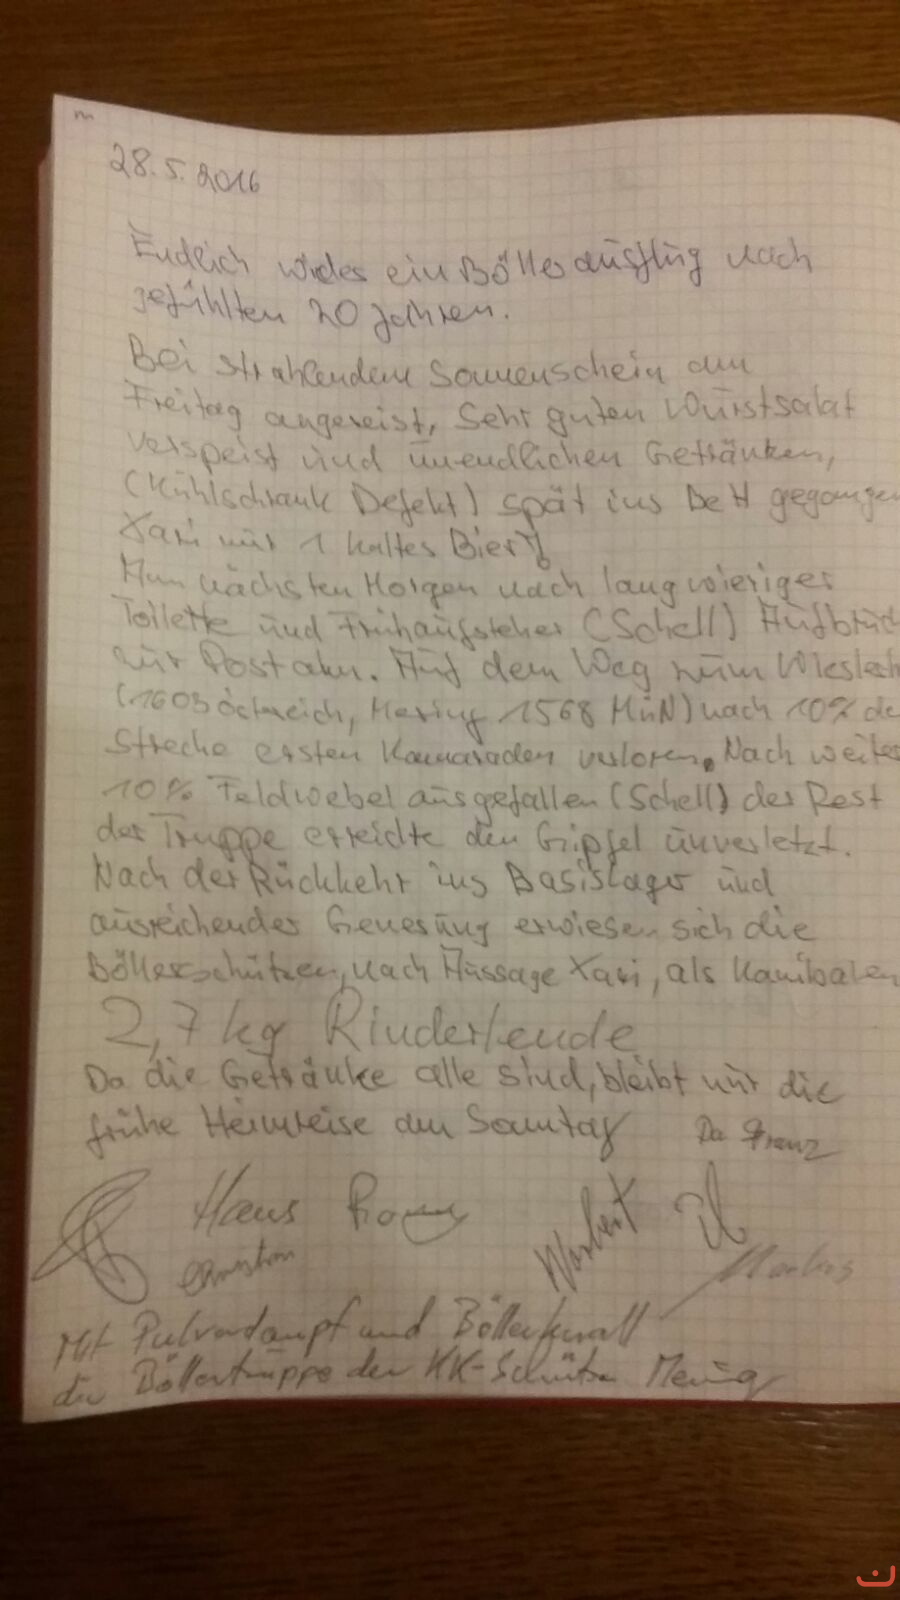 28.5.2016
Endlich wieder ein Böllerausflug nach
gefühlten 20 Jahren.
Bei strahlendem Sonnenschein am
Freitag angereist, Sehr guten Wurstsalat
verspeist und unendlichen Getränken,
(Kühlschrank Defekt) spät ins Bett gegangen
Xari nur 1 kaltes Bier!
Am nächsten Morgen nach langwieriger
Toilette und Frühaufsteher (Schell) Aufbruch
zur Postalm. Auf dem Weg zum
(1603 Östreich, Mering 1568 MüN) nach 10% de
Strecke ersten Kamaraden verloren. Nach weiter
10% Feldwebel ausgefallen (Schell) der Rest
der Truppe erreichte den Gipfel unverletzt.
Nach der Rückkehr ins Basislager und
ausreichender Genesung erwiesen sich die
Böllerschützen, nach Massage Xari, als Kanibalen
2,7 kg Rinderlende
Da die Getränke alle sind, bleibt nur die
frühe Heimreise am Sonntag Da Franz
Hans Norbert
Christian Markus
Mit Pulverdampf und Böllerknall
die Böllertruppe der KK-Schützen Mering